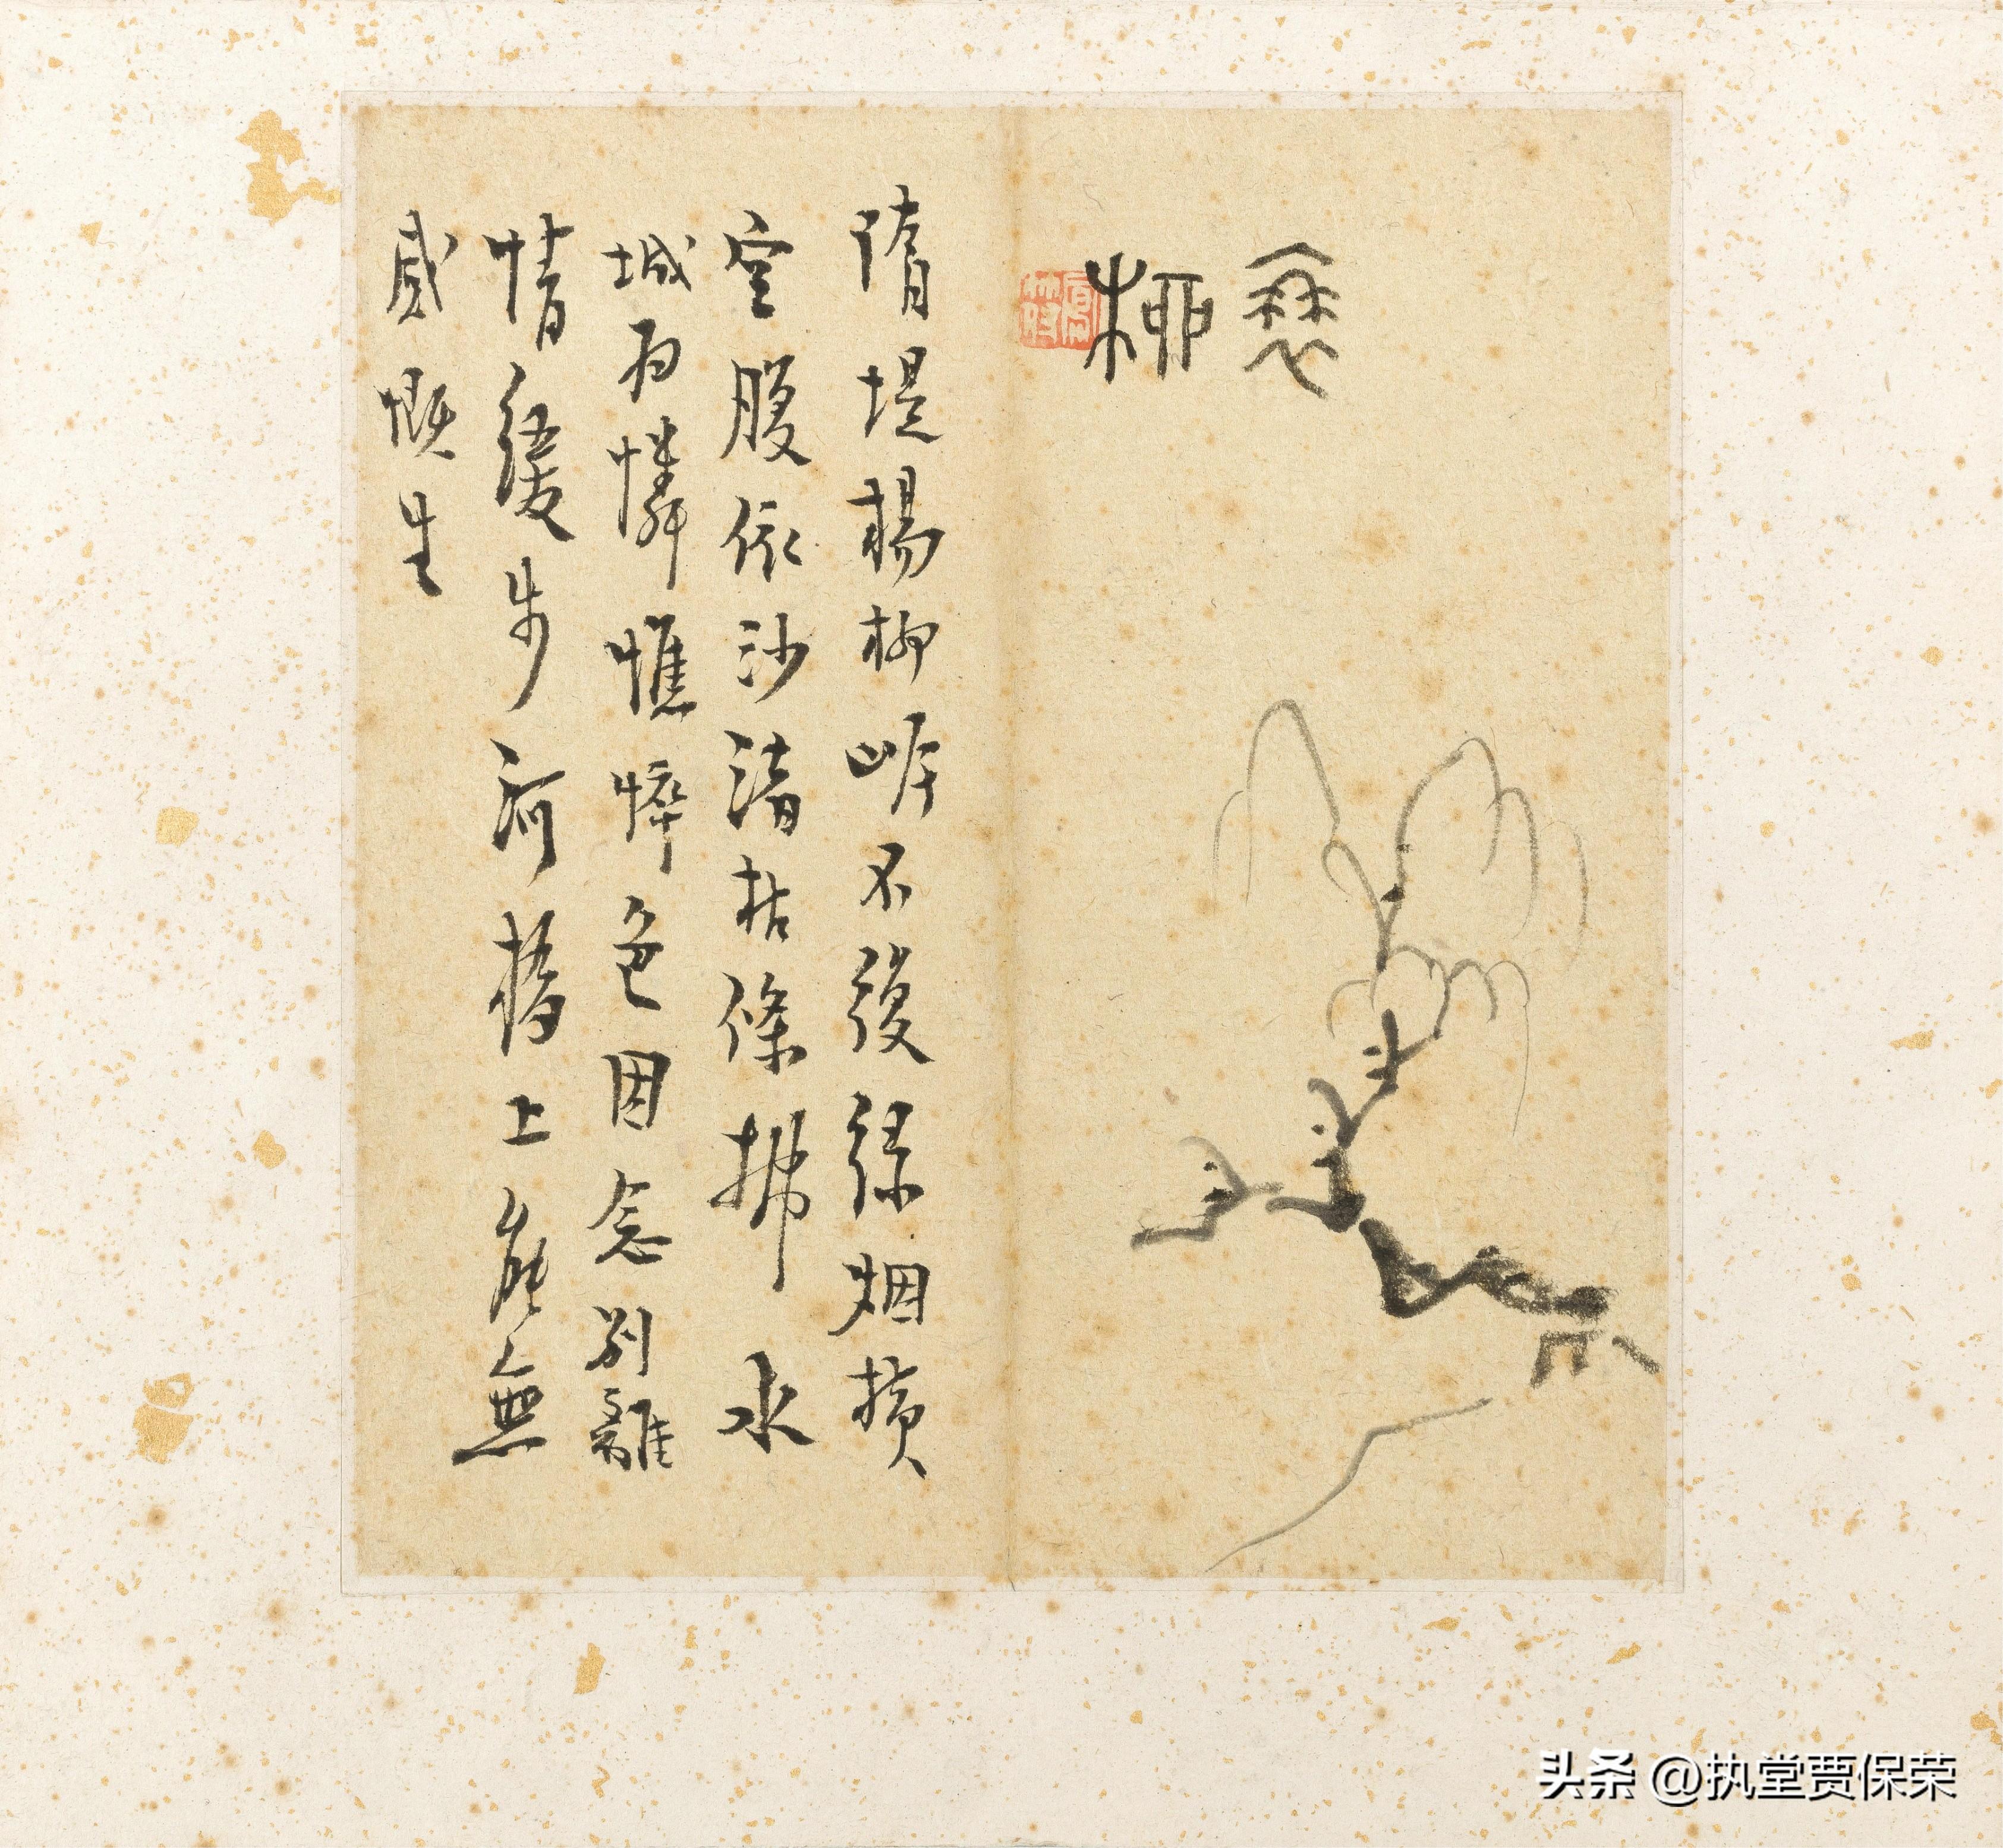 柳
隋堤楊柳岸不復綠烟橫
空腹依沙渚枯條拂水
城為憐憔悴色因念別離
情緩步河橋上能無
感慨生
头条 @执堂贾保荣